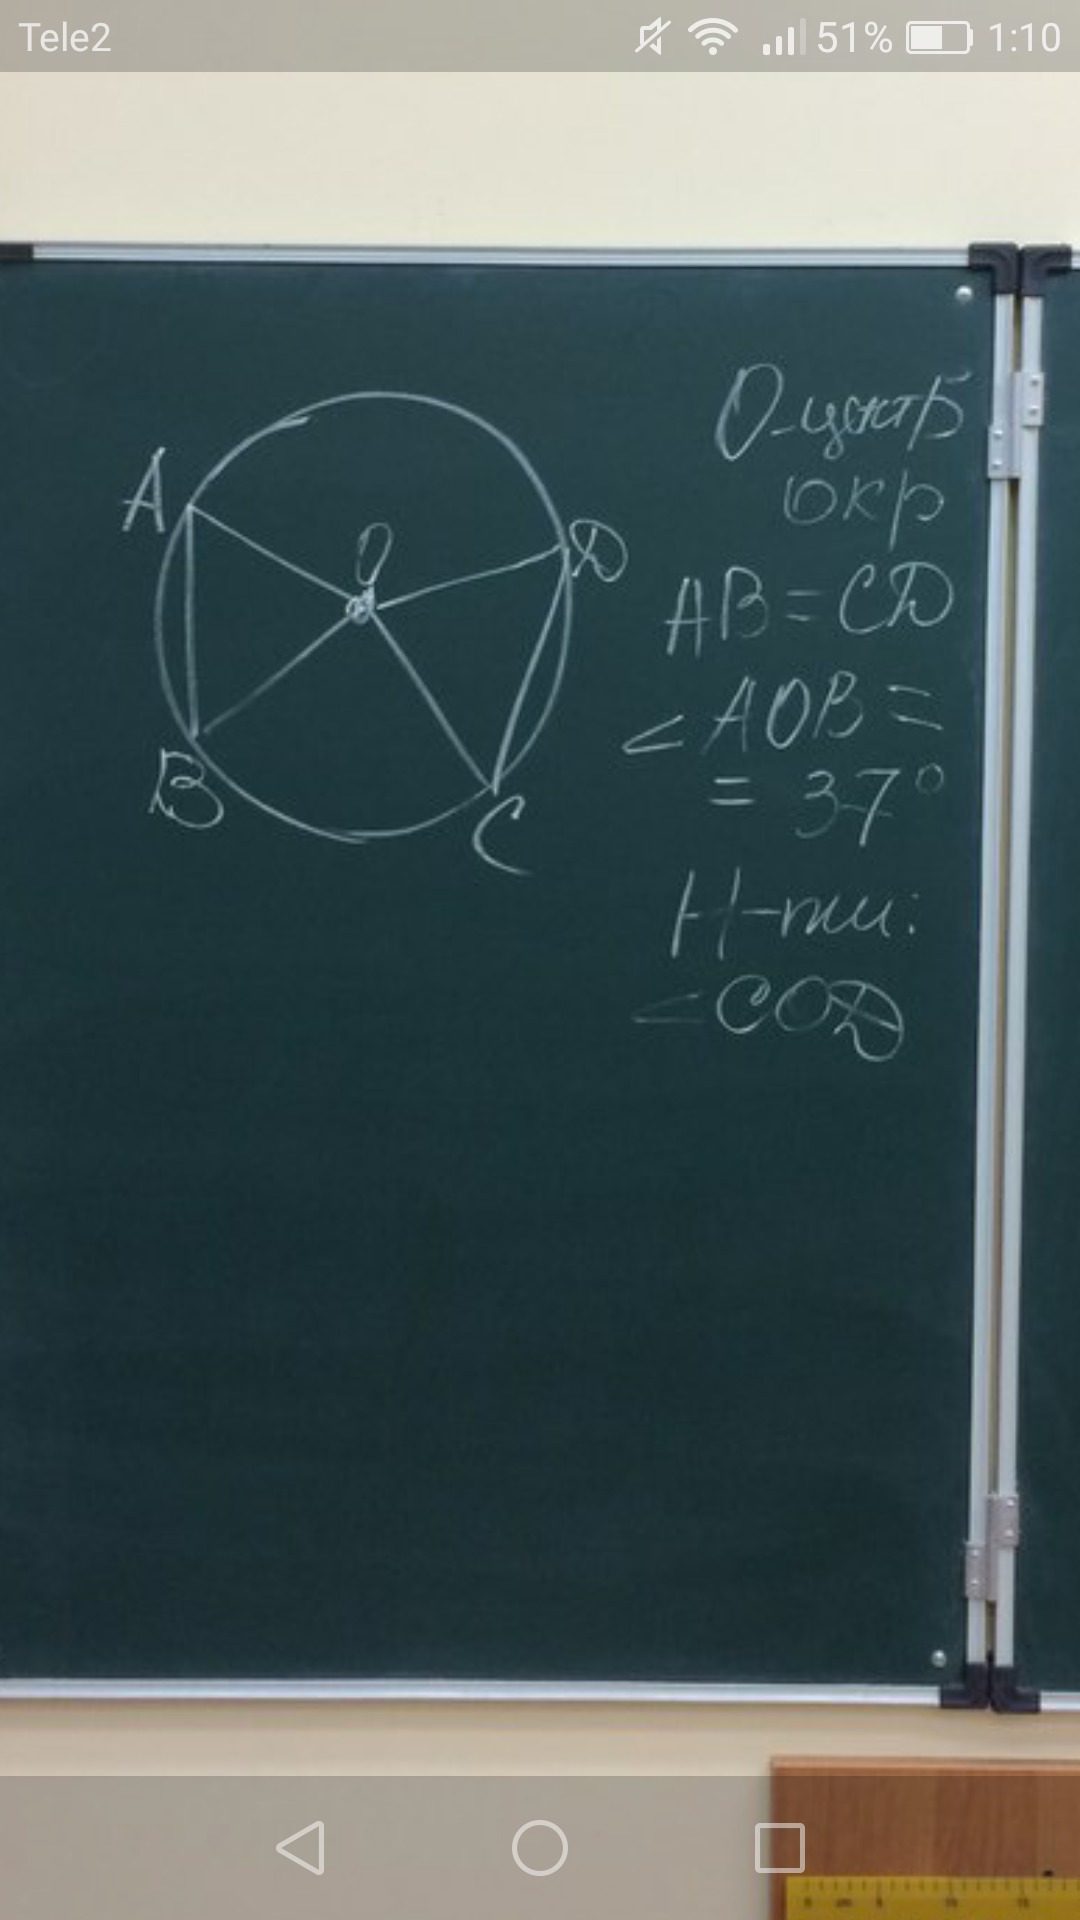 Tele2 51% 1:10
A
O
D
B
C
O-центр
окр
AB=CD
∠AOB=
= 37°
Н-ти:
∠COD